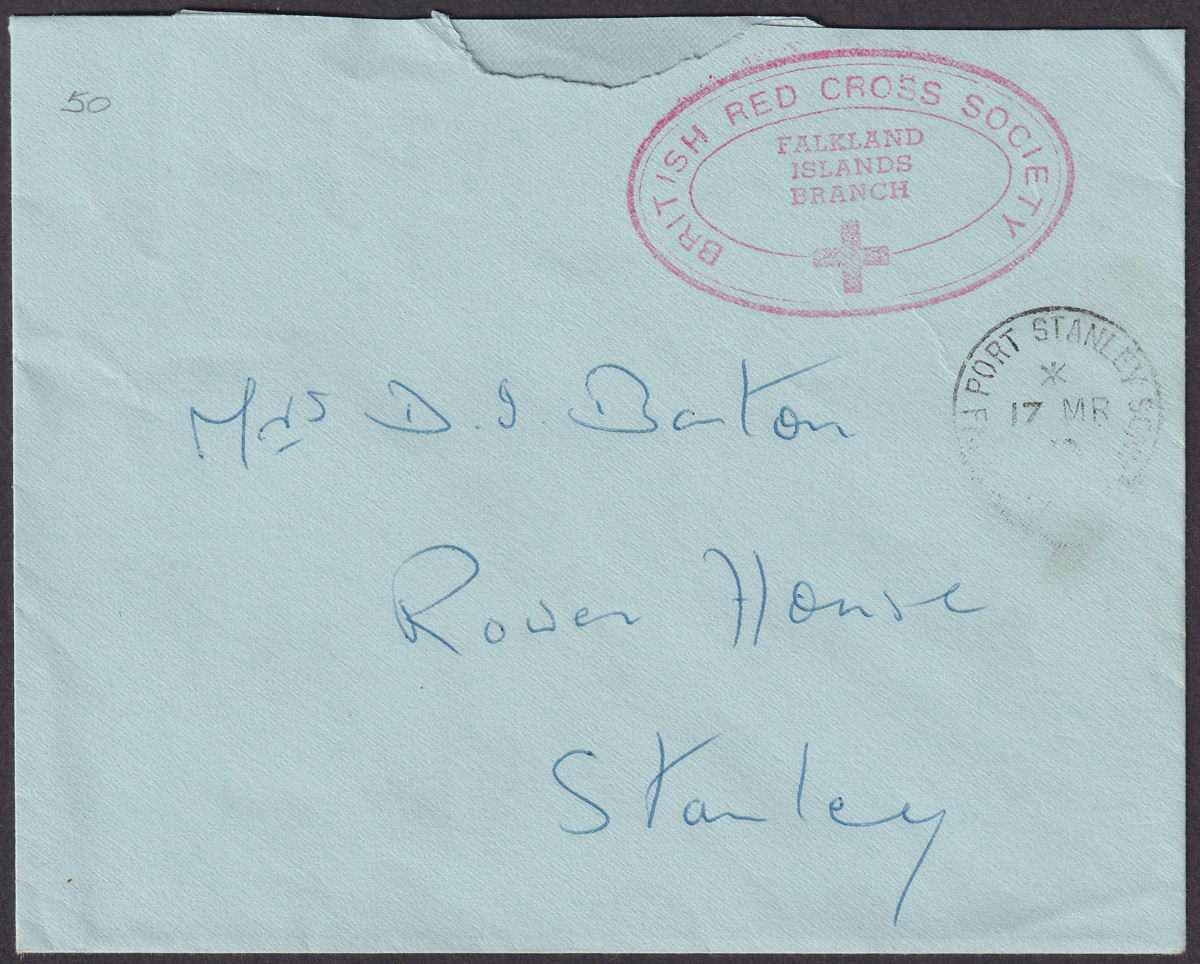 50
BRITISH RED CROSS SOCIETY
FALKLAND
ISLANDS
BRANCH
PORT STANLEY
*
17 MR
Mrs D. I. Barton
Rowen House
Stanley